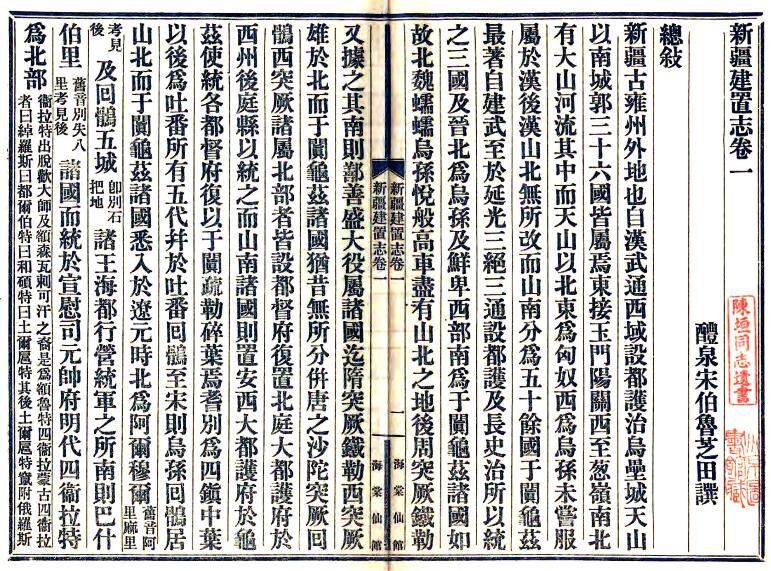 新疆建置志卷一
醴泉宋伯魯芝田譔
陳垣同志遺書
總敍
新疆古雍州外地也自漢武通西域設都護治烏壘城天山
以南城郭三十六國皆屬焉東接玉門陽關西至葱嶺南北
有大山河流其中而天山以北東爲匈奴西爲烏孫未嘗服
屬於漢後漢山北無所改而山南分爲五十餘國于闐龜茲
最著自建武至於延光三絕三通設都護及長史治所以統
之三國及晉北爲烏孫及鮮卑西部南爲于闐龜茲諸國如
故北魏蠕蠕烏孫悅般高車盡有山北之地後周突厥鐵勒
新疆建置志卷一
一
海棠仙館
新疆建置志卷一
海棠仙館
又據之其南則鄯善盛大役屬諸國迄隋突厥鐵勒西突厥
雄於北而于闐龜茲諸國猶昔無所分併唐之沙陀突厥回
鶻西突厥諸屬北部者皆設都督府復置北庭大都護府於
西州後庭縣以統之而山南諸國則置安西大都護府於龜
茲使統各都督府復以于闐疏勒碎葉焉耆別爲四鎭中葉
以後爲吐番所有五代幷於吐番回鶻至宋則烏孫回鶻居
山北而于闐龜茲諸國悉入於遼元時北爲阿爾穆爾舊音阿里麻里
考見後及回鶻五城卽別石把地諸王海都行營統軍之所南則巴什
伯里舊音別失八里考見後諸國而統於宣慰司元帥府明代四衞拉特
爲北部衞拉特出脫歡大師及額森瓦剌可汗之裔是爲額魯特四衞拉蒙古四衞拉
者曰綽羅斯曰都爾伯特曰和碩特曰土爾扈特其後土爾扈特竄附俄羅斯